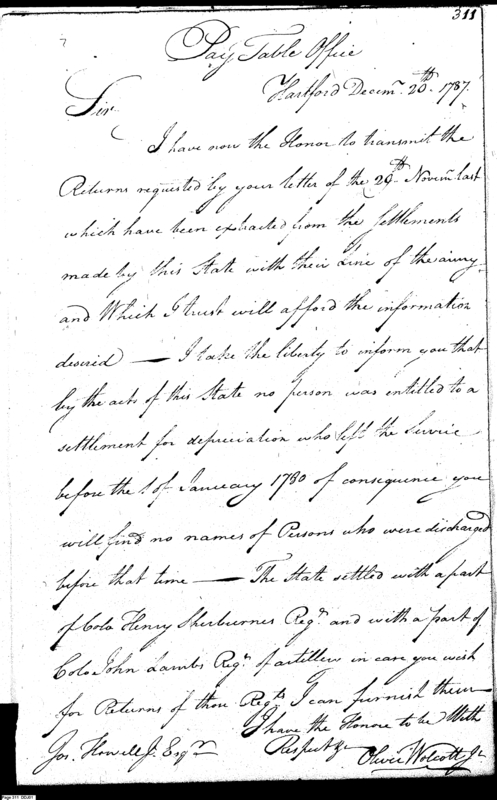 311
Pay Table Office
Hartford Decemr. 20th. 1787.
Sir
I have now the Honor to transmit the
Returns requested by your letter of the 29th Novemr last
which have been extracted from the Settlements
made by this State with their Line of the army
and Which I trust will afford the information
desired — I take the liberty to inform you that
by the acts of this State no person was entitled to a
settlement for depreciation who left the Service
before the 1 of January 1780 of consequence you
will find no names of Persons who were discharged
before that time — The State settled with a part
of Colo Henry Sherburnes Regt. and with a part of
Colo John Lambs Regt. of artillery in case you wish
for Returns of those Regts. I can furnish them
I have the Honor to be With
Jos. Howell Jr. Esqr
Respect &c
Oliver Wolcott Jr
Page 311 D0J01